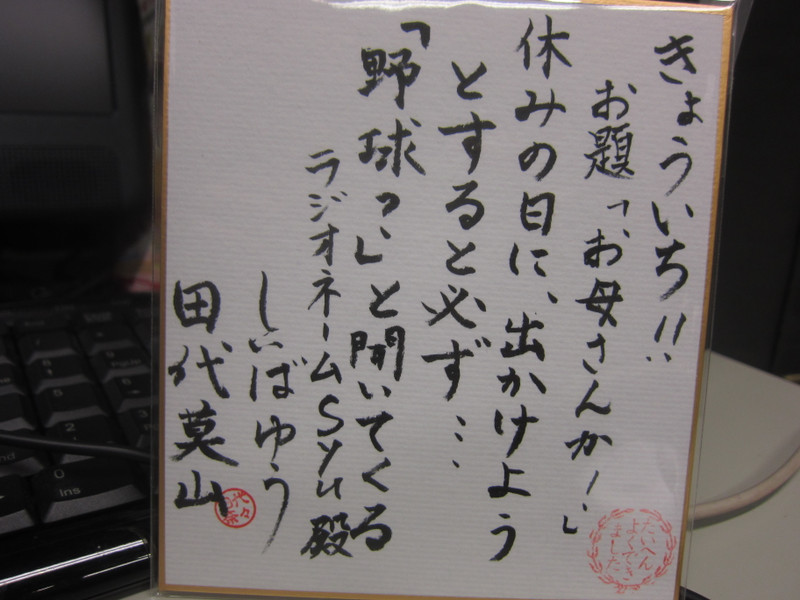 きょういち!!
お題「お母さんか!」
休みの日に、出かけよう
とすると必ず…
「野球っ」と聞いてくる
ラジオネームSyu殿
しばゆう
田代莫山
たいへん
よくでき
ました
0
Ins